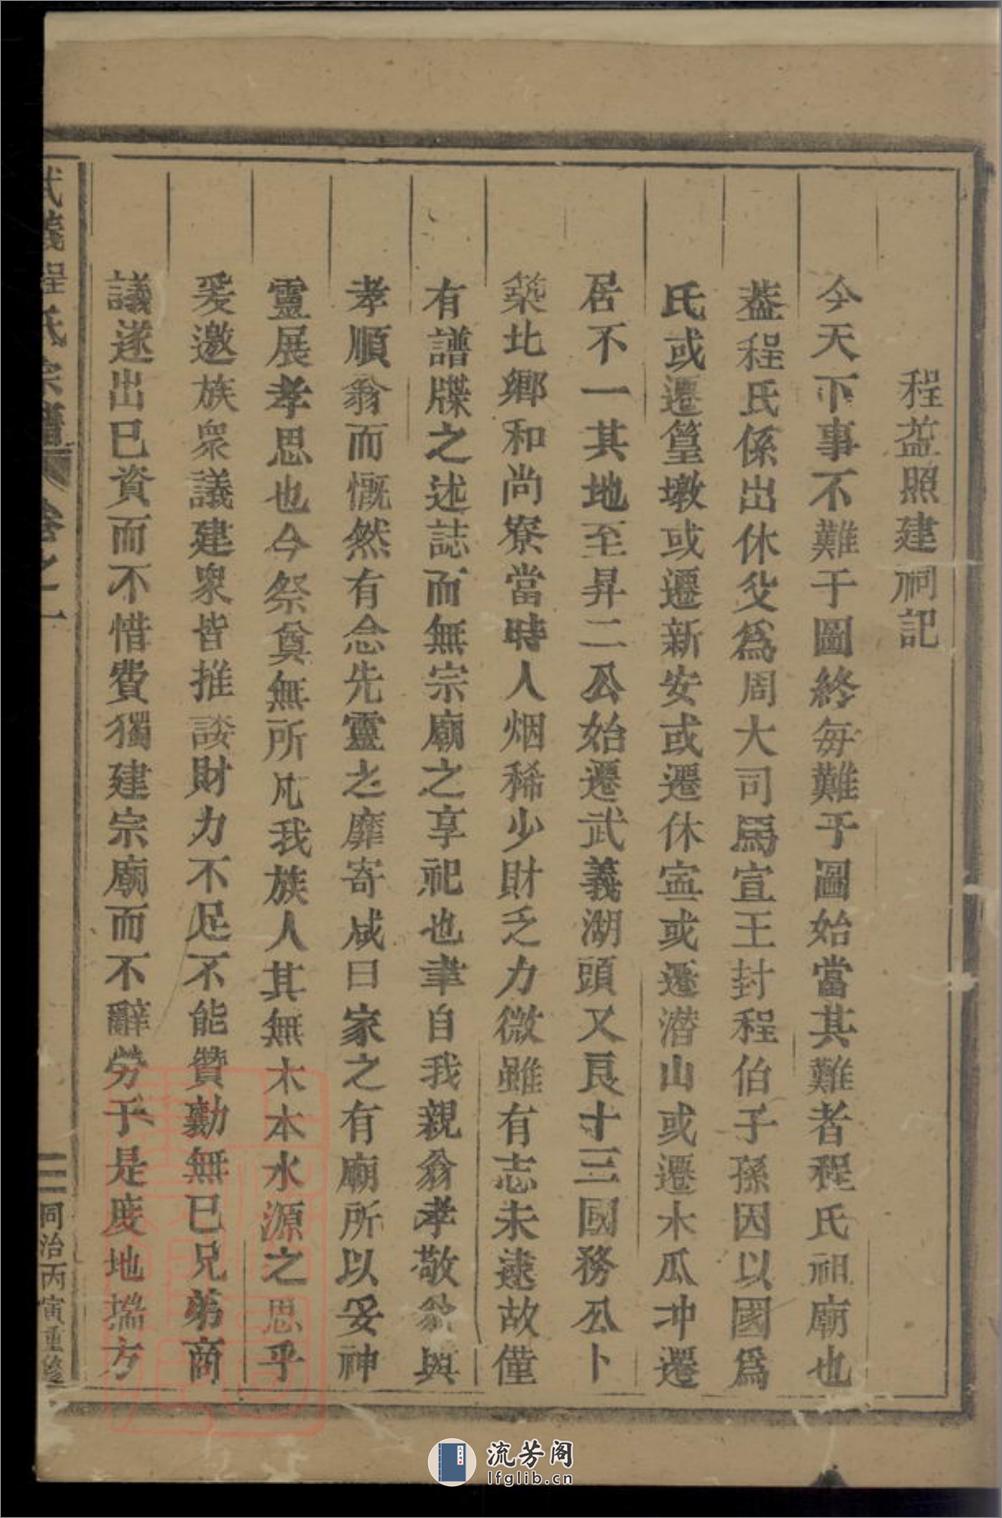 程葢照建祠記
今天下事不難于圖終每難于圖始當其難者程氏祖廟也
葢程氏係出休父爲周大司馬宣王封程伯子孫因以國爲
氏或遷篁墩或遷新安或遷休寍或遷潛山或遷木瓜冲遷
居不一其地至昇二公始遷武義湖頭又艮十三國務公卜
築北鄉和尚寮當時人烟稀少財乏力微雖有志未逮故僅
有譜牒之述誌而無宗廟之享祀也聿自我親翁孝敬翁與
孝順翁而慨然有念先靈之靡寄咸曰家之有廟所以妥神
靈展孝思也今祭奠無所凡我族人其無木本水源之思乎
爰邀族眾議建眾皆推諉財力不足不能贊勷無已兄弟商
議遂出已資而不惜費獨建宗廟而不辭勞于是度地揣方
武義程氏宗譜 卷之一 二 同治丙寅重修
流芳阁
lfglib.cn